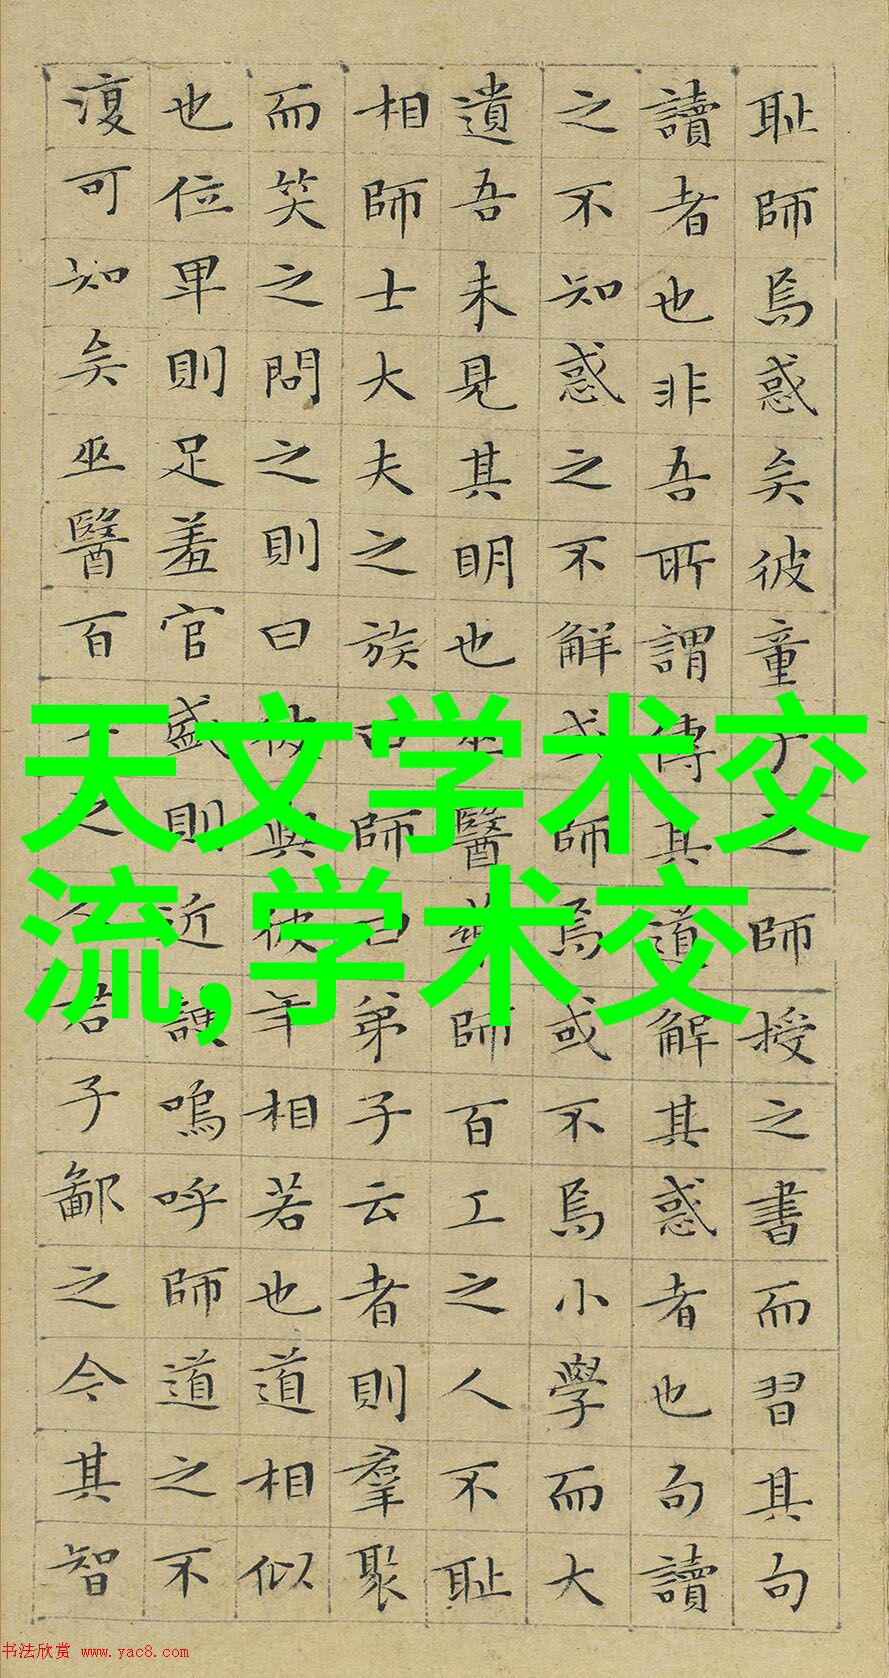 耻師焉惑矣彼童子之師授之書而習其句
讀者也非吾所謂傳其道解其惑者也句讀
之不知惑之不解或師焉或不焉小學而大
遺吾未見其明也巫醫樂師百工之人不耻
相師士大夫之族曰師曰弟子云者則羣聚
而笑之問之則曰彼與彼年相若也道相似
也位卑則足羞官盛則近諛嗚呼師道之不
復可知矣巫醫百之君子鄙之今其智
天文学术交
流,学术交
书法欣赏 www.yac8.com